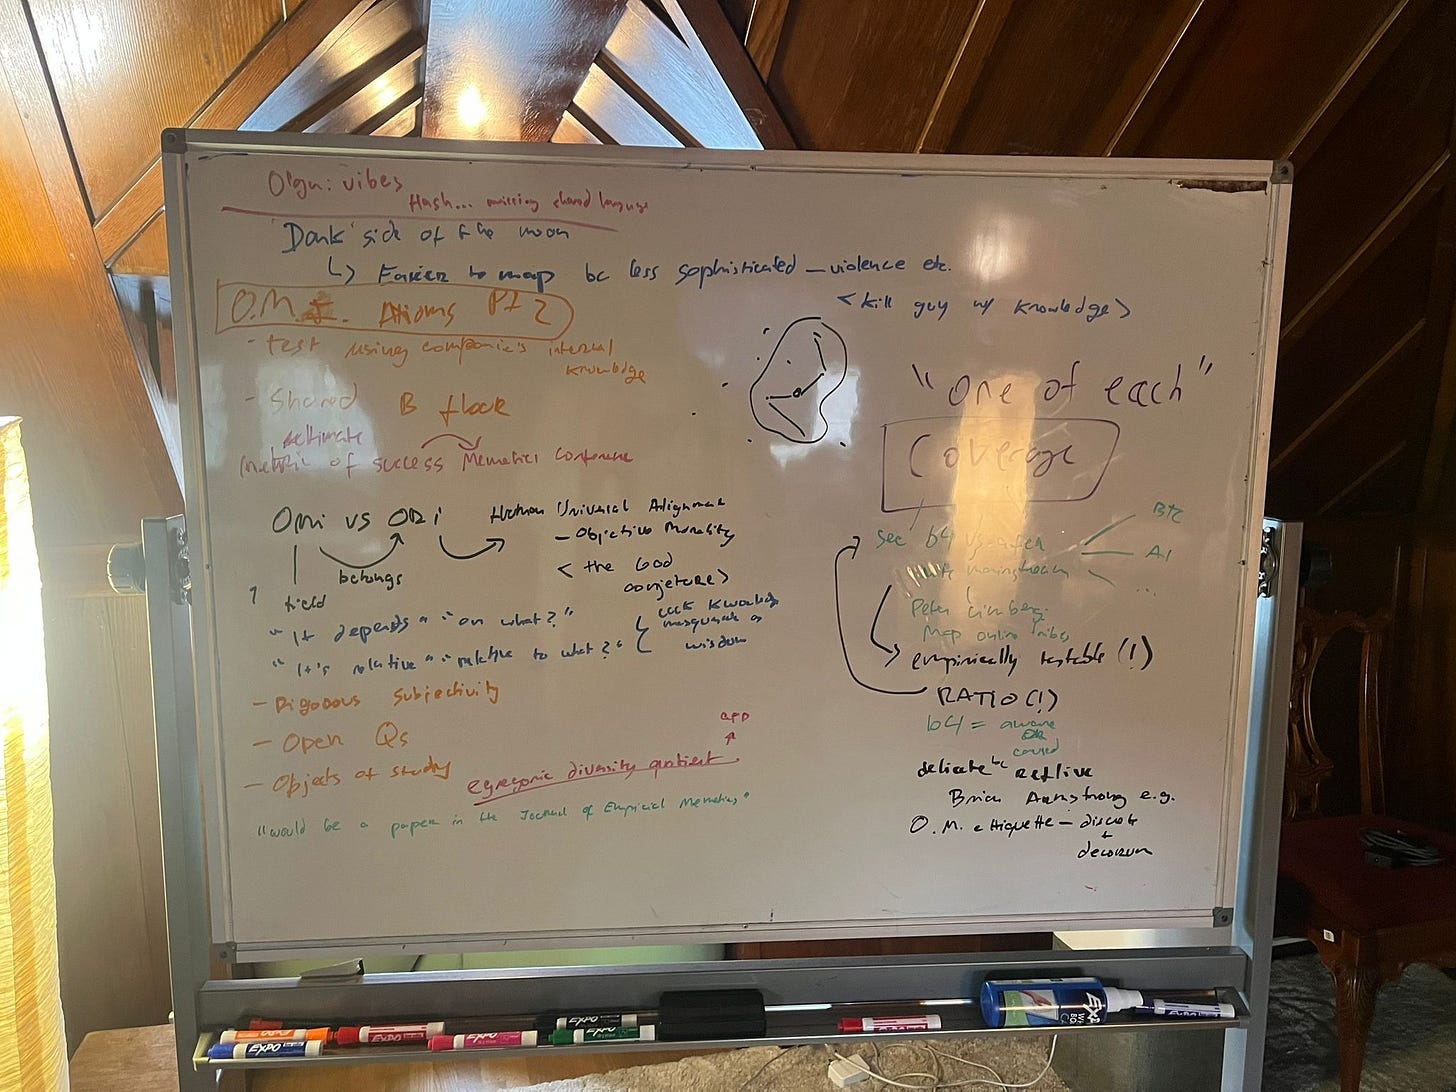 Olga: vibes
Hash... missing shared language
"Dark" side of the moon
↳ Easier to map bc less sophisticated — violence etc.
<kill guy w/ knowledge>
O.M. Axioms Pt 2
- test using companie's internal knowledge
- Shared B flock
ultimate
metric of success Memetics Conference
Omi vs ORi
Human Universal Alignment
- Objective Morality
< the Good
conjecture>
belongs
field
"It depends" "on what?"
"It's relative" "relative to what?"
knowledge
masquerade as
wisdom
- Rigorous subjectivity
- Open Qs
- Objects of study
egregoric diversity quotient
app
"would be a paper in the Journal of Empirical Memetics"
"one of each"
Coverage
see b4 vs after
mainstream
BTC
AI
...
Peter Limberg
Map online tribes
empirically testable (!)
RATIO (!)
b4 = aware
OR
caused
delicate bc reflive
Brian Armstrong e.g.
O.M. ettiquette — discrete
+
decorum
EXPO
EXPO
EXPO
EXPO
EXPO